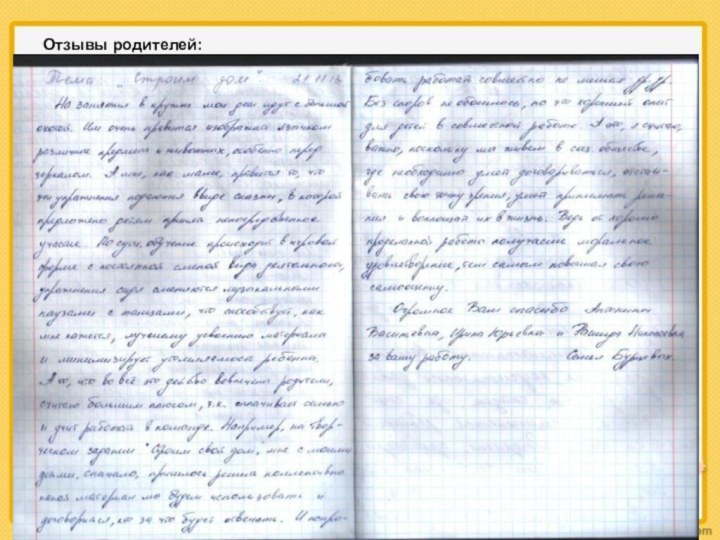 Отзывы родителей:
Тема: „Строим дом" 21.11.12
На занятия в кружок мои дети идут с большой
охотой. Им очень нравится изображать язычком
различные предметы и животных, особенно перед
зеркалом. А мне, как маме, нравится то, что
эти упражнения подаются в виде сказки, в которой
предложено детям принять непосредственное
участие. По сути, обучение происходит в игровой
форме с постоянной сменой вида деятельности,
упражнения сидя сменяются музыкальными
паузами с танцами, что способствует, как
мне кажется, лучшему усвоению материала
и минимизирует утомляемость ребенка.
А то, что во всё это действо вовлечены родители,
считаю большим плюсом, т.к. сплачивает семью
и учит работать в команде. Например, на твор-
ческом задании "Строим свой дом", мне с моими
детьми, сначала, пришлось решать коллективно
какой материал мы будем использовать и
договориться, кто за что будет отвечать. И попро-
бовать работать совместно не мешая др. др.
Без споров не обошлось, но это хороший опыт
для детей в совместной работе. А это, я считаю,
важно, поскольку мы живем в обществе,
где необходимо уметь договариваться, отстаи-
вать свою точку зрения, уметь принимать реше-
ния и воплощать их в жизнь. Ведь от хорошо
проделанной работы получаешь моральное
удовлетворение, тем самым повышая свою
самооценку.
Огромное Вам спасибо
Васильевна, Ирина Юрьевна и Николаевна
за вашу работу. Семья